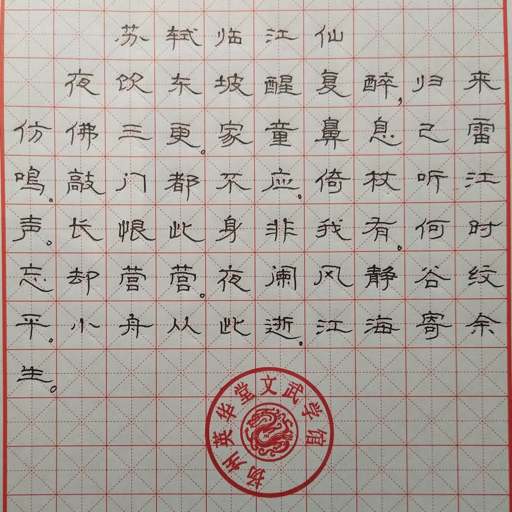 苏轼临江仙
夜饮东坡醒复醉,归来
仿佛三更。家童鼻息已雷
鸣。敲门都不应。倚杖听江
声。长恨此身非我有。何时
忘却营营。夜阑风静谷纹
平。小舟从此逝。江海寄余
生。
扬州英华堂文武学馆